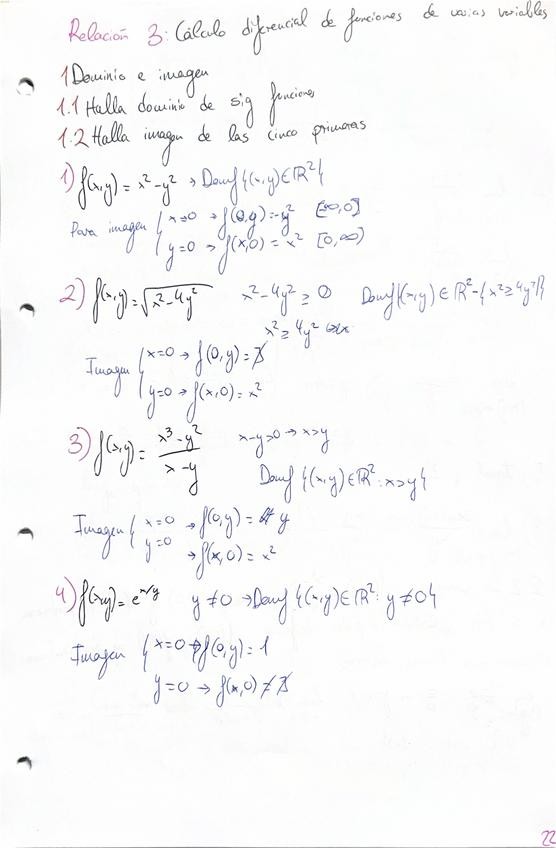 Relación 3: Cálculo diferencial de funciones de varias variables
1 Dominio e imagen
1.1 Halla dominio de sig funciones
1.2 Halla imagen de las cinco primeras
1) f(x,y) = x² - y² → Domf {(x,y) ∈ ℝ²}
Para imagen { x=0 → f(0,y) = -y² [∞,0]
y=0 → f(x,0) = x² [0,∞)
2) f(x,y) = √(x² - 4y²) x² - 4y² ≥ 0 Domf {(x,y) ∈ ℝ² - {x² ≥ 4y²}}
x² ≥ 4y²
Imagen { x=0 → f(0,y) = ∄
y=0 → f(x,0) = x²
3) f(x,y) = (x³ - y²)/(x - y) x-y>0 → x>y
Domf {(x,y) ∈ ℝ² : x>y}
Imagen { x=0 → f(0,y) = y
y=0 → f(x,0) = x²
4) f(x,y) = e^(x/y) y ≠ 0 → Domf {(x,y) ∈ ℝ² : y ≠ 0}
Imagen { x=0 → f(0,y) = 1
y=0 → f(x,0) ≠ ∄
22